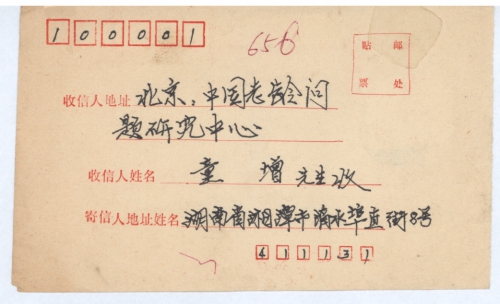 100001
656
贴 邮
票 处
收信人地址 北京,中国老龄问
题研究中心
收信人姓名 童 增 先生收
寄信人地址姓名 湖南省湘潭市滴水埠直街8号
411131